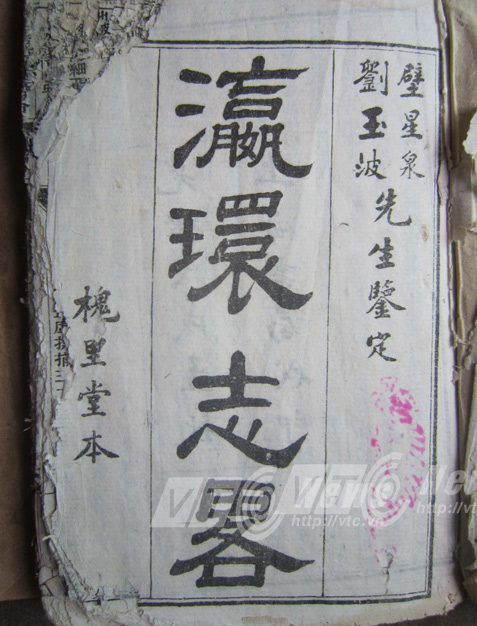 壁星泉
劉玉波
先生鑒定
瀛環志畧
槐里堂本
VTC News
http://vtc.vn